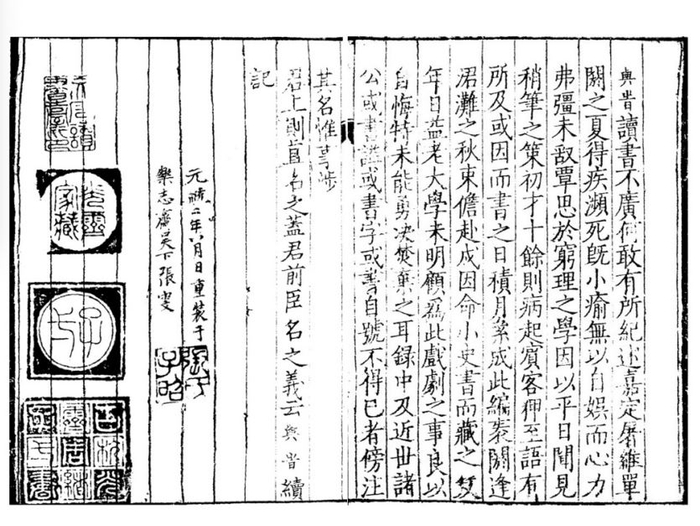 與旹讀書不廣何敢有所紀述嘉定屠維單
閼之夏得疾瀕死旣小瘉無以自娛而心力
弗彊未敢覃思於窮理之學因以平日聞見
稍筆之策初才十餘則病起賓客狎至語有
所及或因而書之日積月絫成此編袠閼逢
涒灘之秋束儋赴戍因命小史書而藏之笈
年日益老大學未明顧爲此戲劇之事良以
自悔特未能勇決焚棄之耳錄中及近世諸
公或書謚或書字或書自號不得已者傍注
其名惟事涉
君上則直名之蓋君前臣名之義云與旹續
記
元 二年八月日重裝于
樂志齋吳下張雯
子昭
家藏